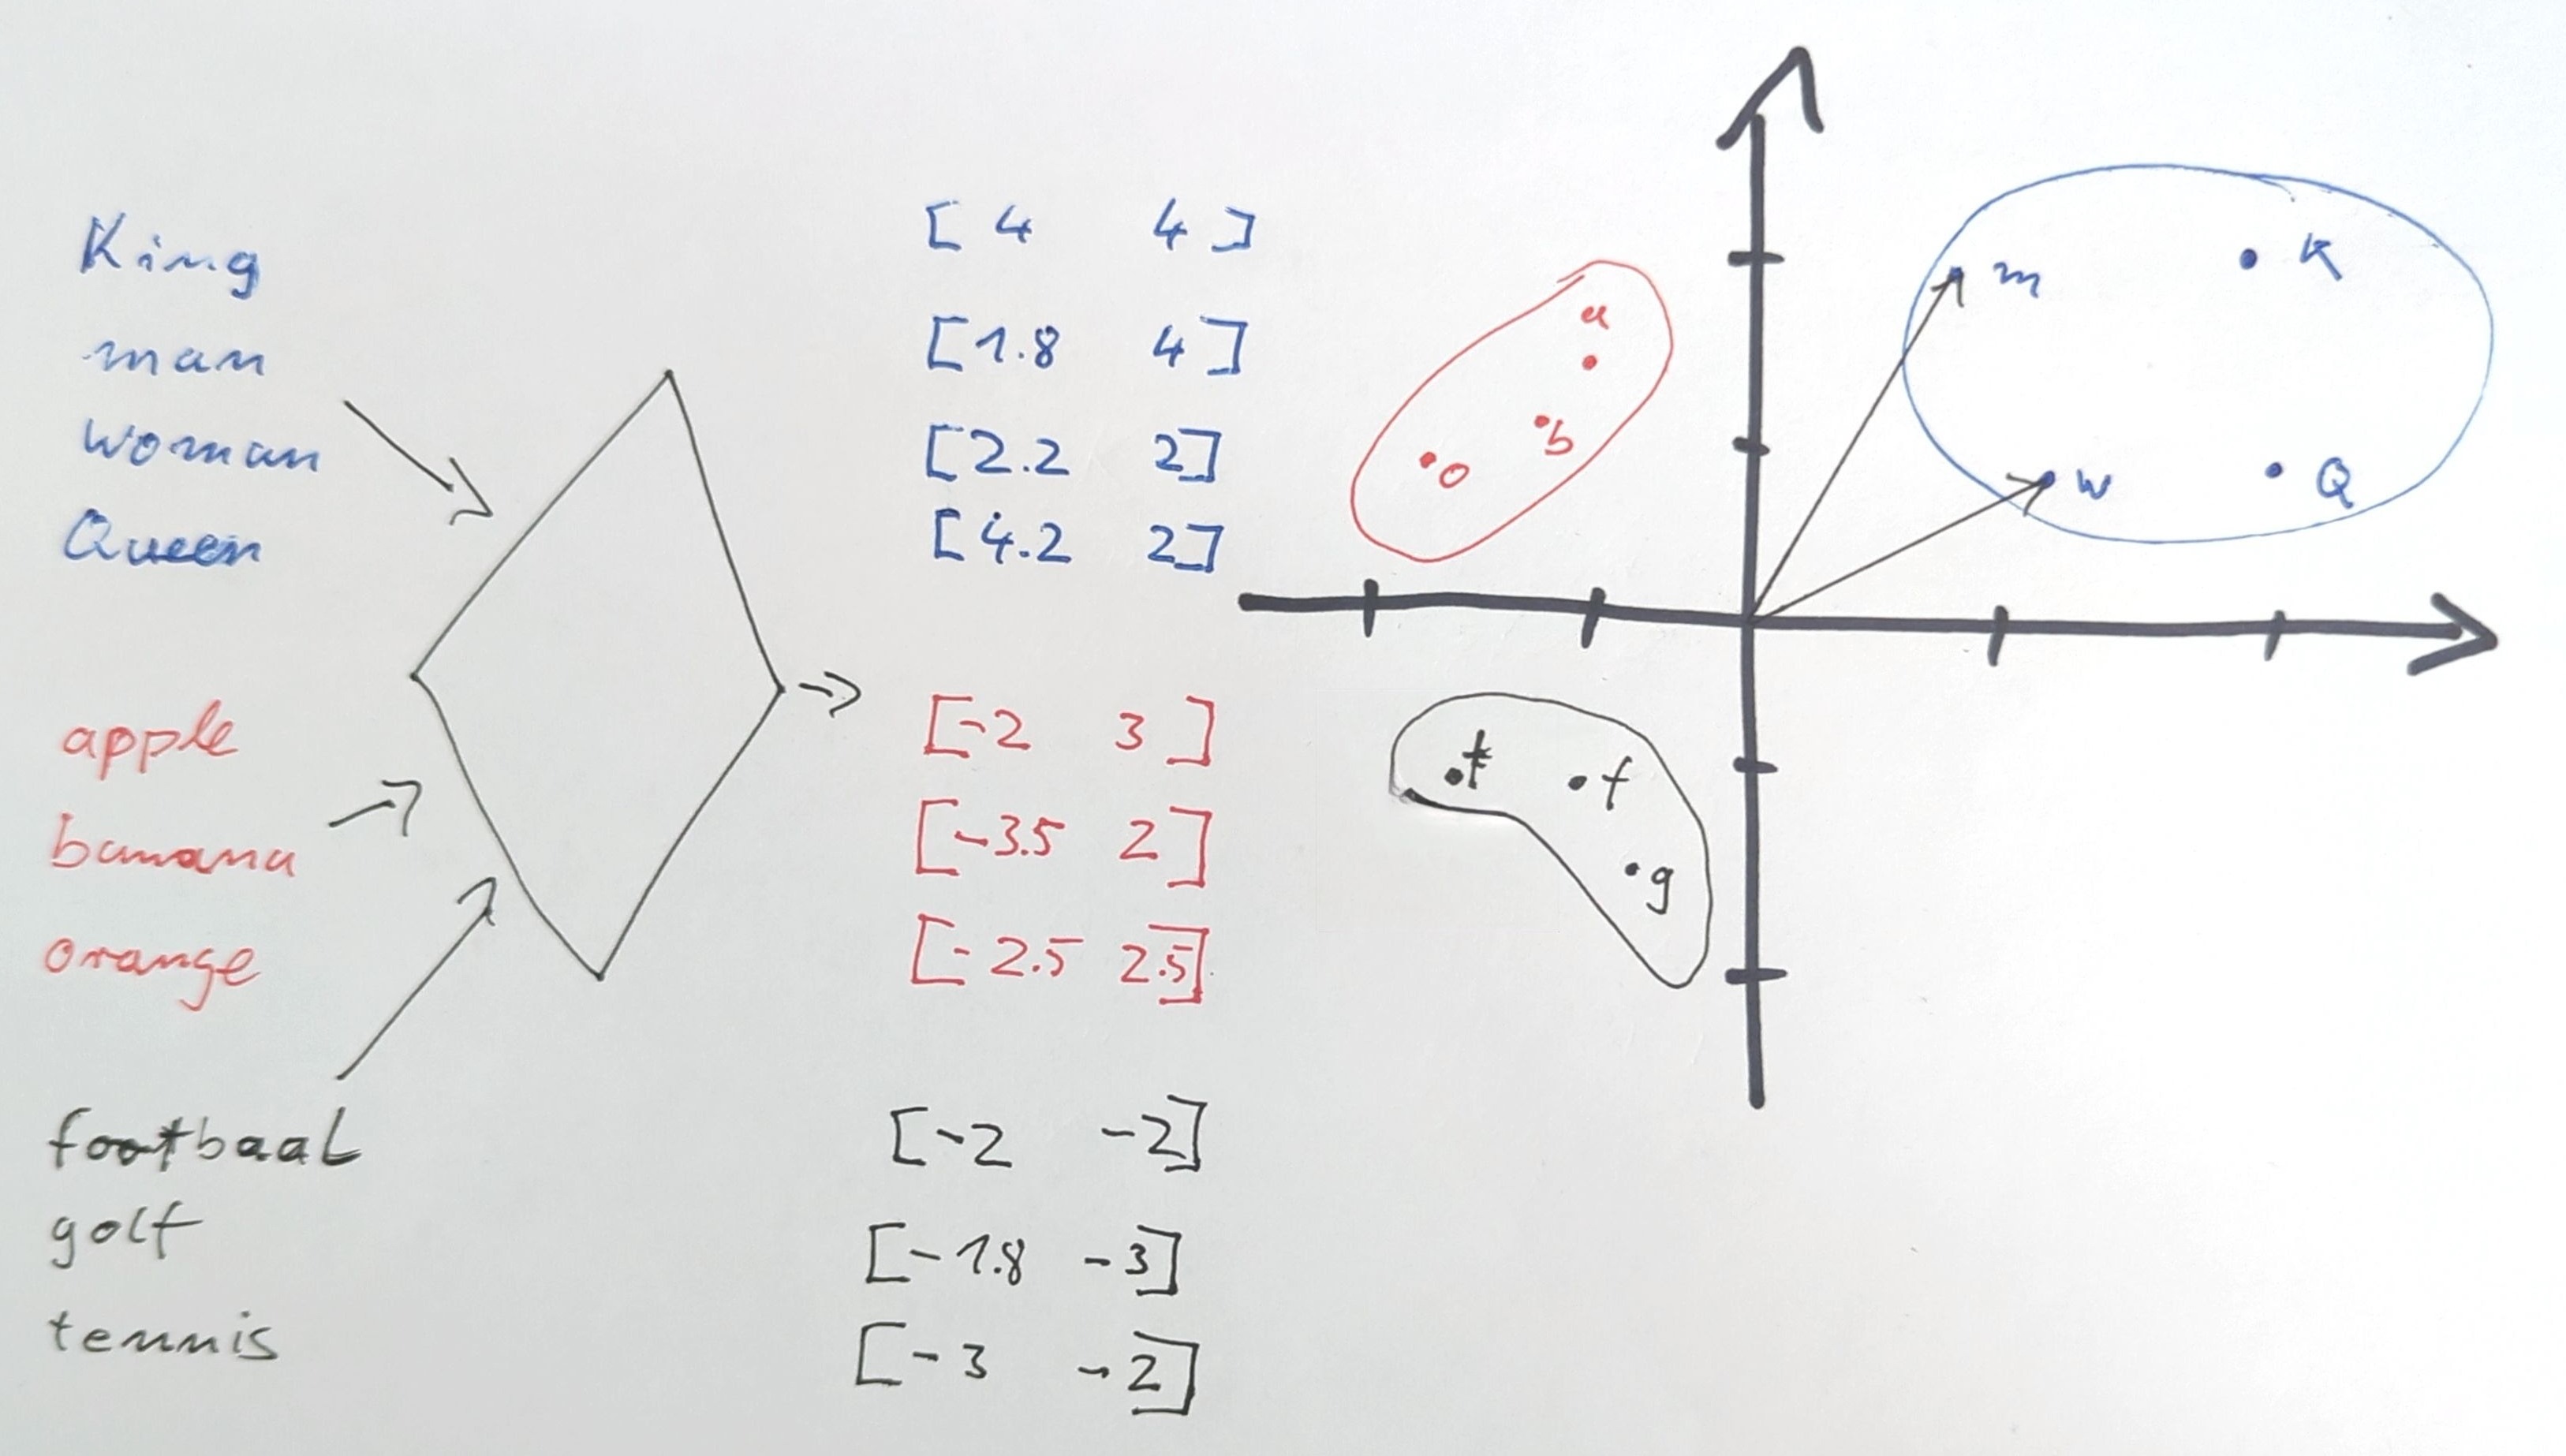 King
man
woman
Queen
apple
banana
orange
footbaal
golf
tennis
[ 4 4 ]
[1.8 4]
[2.2 2]
[4.2 2]
[-2 3 ]
[-3.5 2]
[-2.5 2.5]
[-2 -2]
[-1.8 -3]
[-3 -2]
m
K
w
Q
a
b
o
t
f
g